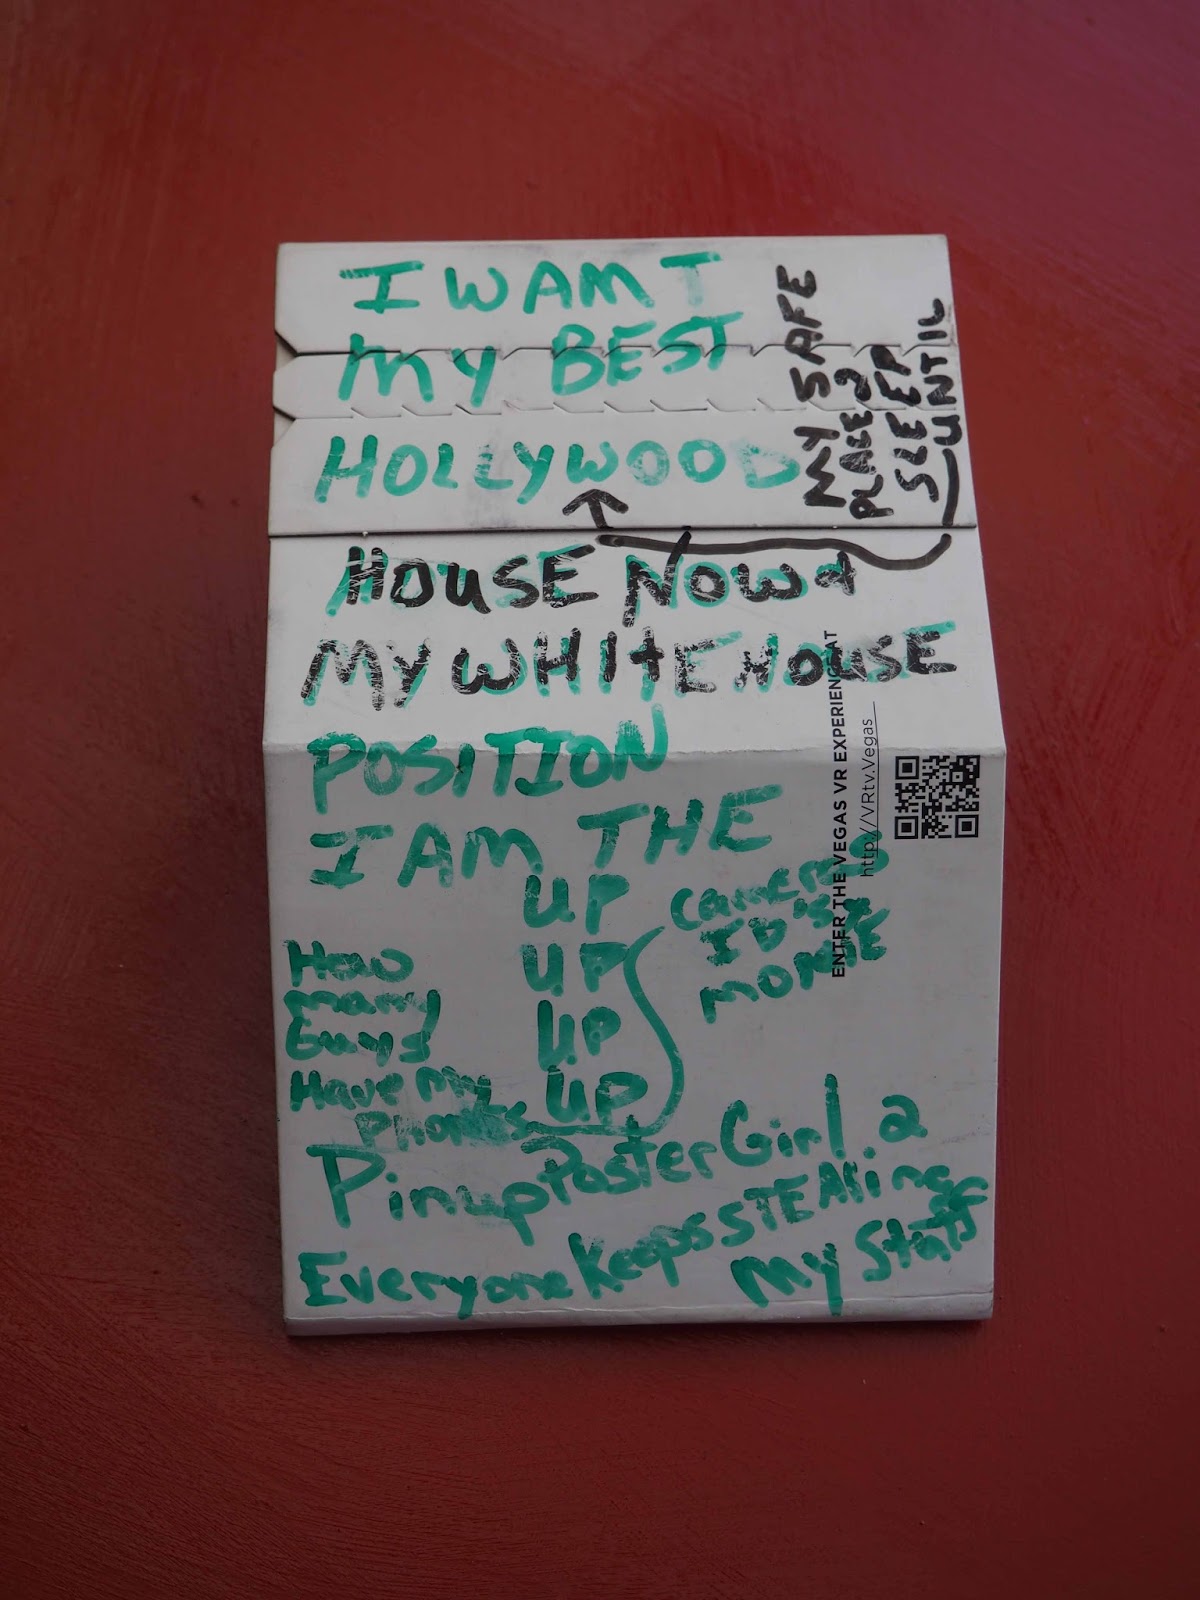 I WAMT
MY BEST
HOLLYWOOD
MY SAFE
PLACE 2
SLEEP
UNTIL
HOUSE NOW &
MY WHITEHOUSE
POSITION
I AM THE
UP
UP
UP
UP
CAMERAS
ID'S
MONIE
How
many
Guys
Have my
Phones
Pinup Poster Girl 2
Everyone Keeps STEAling
my Stuff
ENTER THE VEGAS VR EXPERIENC AT
http://VRtv.Vegas